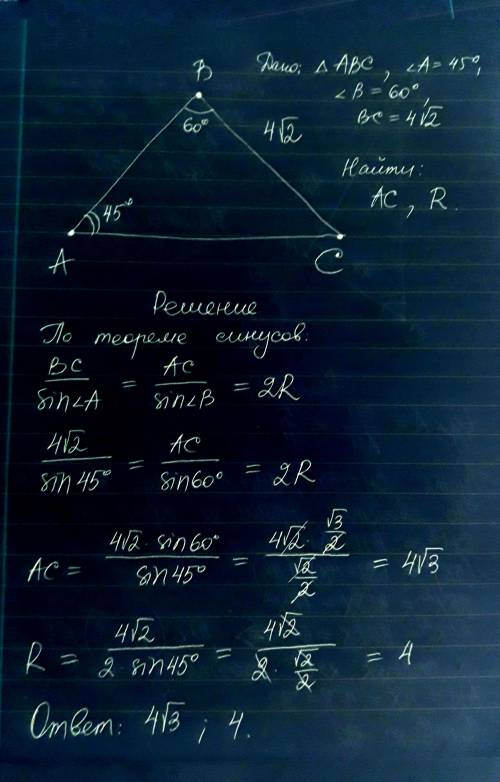 Дано: △ABC, ∠A = 45°,
∠B = 60°,
BC = 4√2
Найти:
AC, R.
B
60°
4√2
45°
A
C
Решение
По теореме синусов:
BC/sin∠A = AC/sin∠B = 2R
4√2/sin45° = AC/sin60° = 2R
AC = 4√2 · sin60°/sin45° = 4√2 · √3/2 / √2/2 = 4√3
R = 4√2/2 sin45° = 4√2/2 · √2/2 = 4
Ответ: 4√3 ; 4.